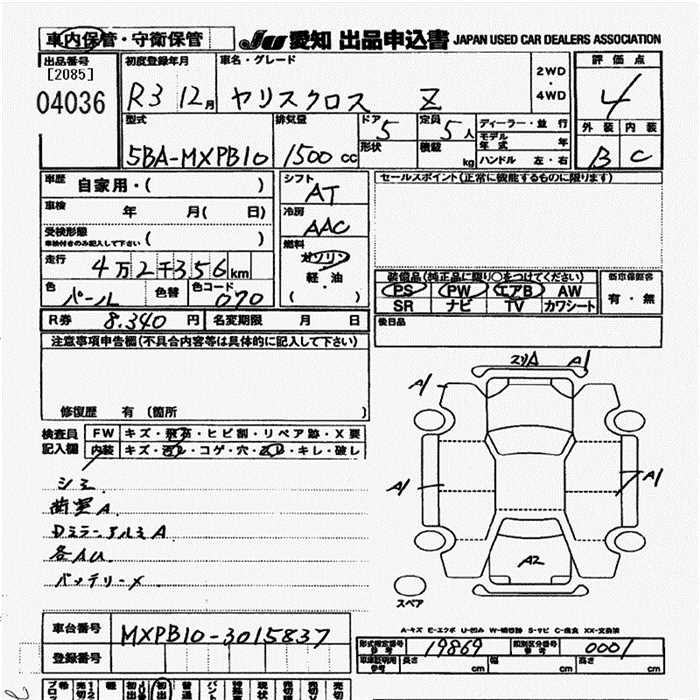 車内保管・守衛保管
JU 愛知 出品申込書 JAPAN USED CAR DEALERS ASSOCIATION
出品番号
[2085]
04036
初度登録年月
R3 12月
車名・グレード
ヤリスクロス Z
2WD
・
4WD
評価点
4
外装 内装
B C
型式
5BA-MXPB10
排気量
1500 cc
ドア 5
形状
定員 5 人
積載 kg
ディーラー・並行
モデル年式 年
ハンドル 左・右
車歴 自家用・( )
車検 年 月( 日)
受検形態
車検付きのみ記入して下さい ( )
走行
4万2千356km
色 パール 色替 色コード 070
シフト
AT
冷房
AAC
燃料
ガソリン
軽・油
( )
セールスポイント(正常に機能するものに限ります)
装備品(純正品に限り○をつけてください)
PS PW エアB AW
SR ナビ TV カワシート
新車保証書
有・無
R券 8.340 円 名変期限 月 日
後日品
注意事項申告欄(不具合内容等は具体的に記入して下さい)
修復歴 有 (箇所 )
検査員
記入欄
FW キズ・飛石・ヒビ割・リペア跡・X要
内装 キズ・汚レ・コゲ・穴・スレ・キレ・破レ
シミ
荷室A
Dミラー アルミA
各AU
バッテリーX
A1
A1
A1
A1
A2
スペア
A-キズ E-エクボ U-凹み W-補修跡 S-サビ C-腐食 XX-交換済
車台番号 MXPB10-3015837
登録番号
型式指定番号 19869 類別区分番号 0001
車車証明用記入欄 長さ cm 幅 cm 高さ cm